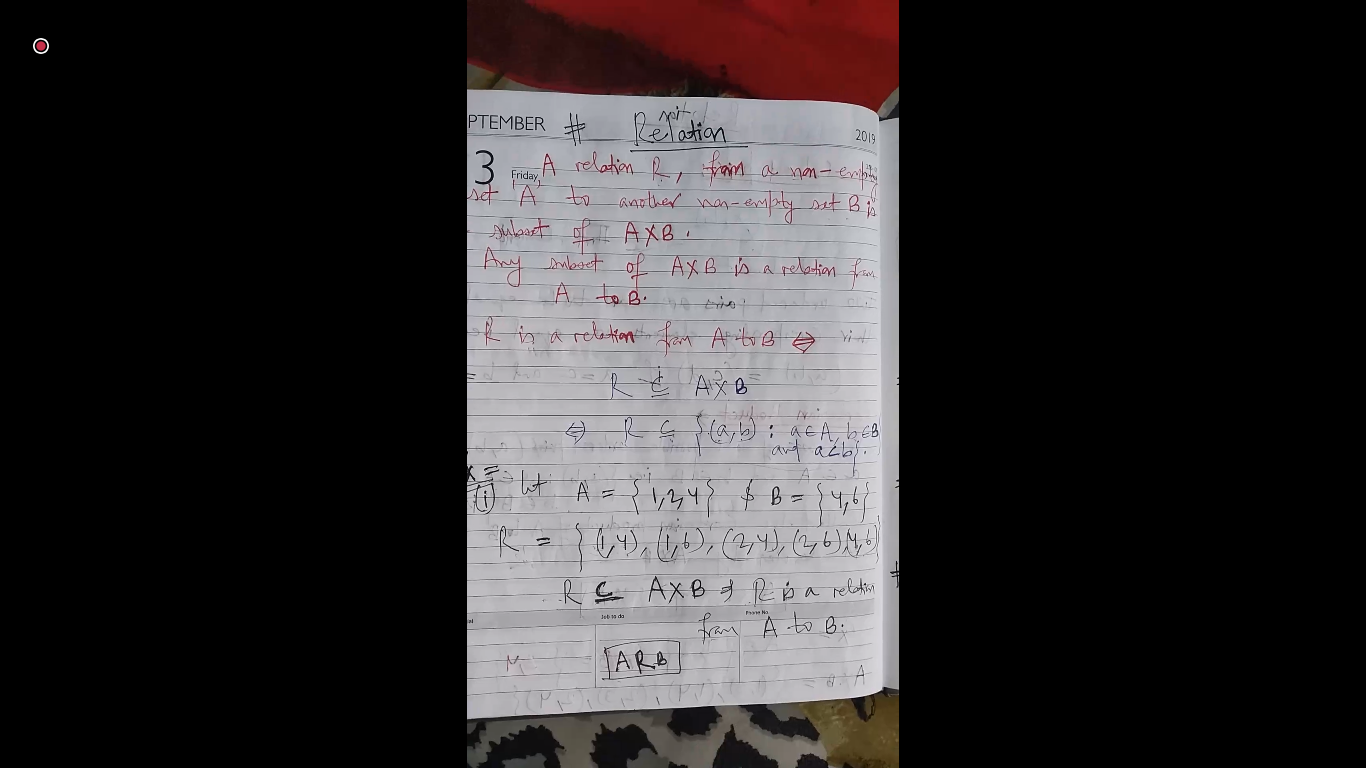 PTEMBER # Relation 2019
3 Friday, A relation R, from a non-empty
set A to another non-empty set B is
subset of A×B.
Any subset of A×B is a relation from
A to B.
R is a relation from A to B ⇔
R ⊆ A×B
⇔ R ⊆ {(a,b) : a∈A, b∈B
and a<b}.
(i) let A = {1,2,4} & B = {4,6}
R = {(1,4), (1,6), (2,4), (2,6)(4,6)}
R ⊆ A×B & R is a relation
Job to do Phone No.
from A to B.
ARB